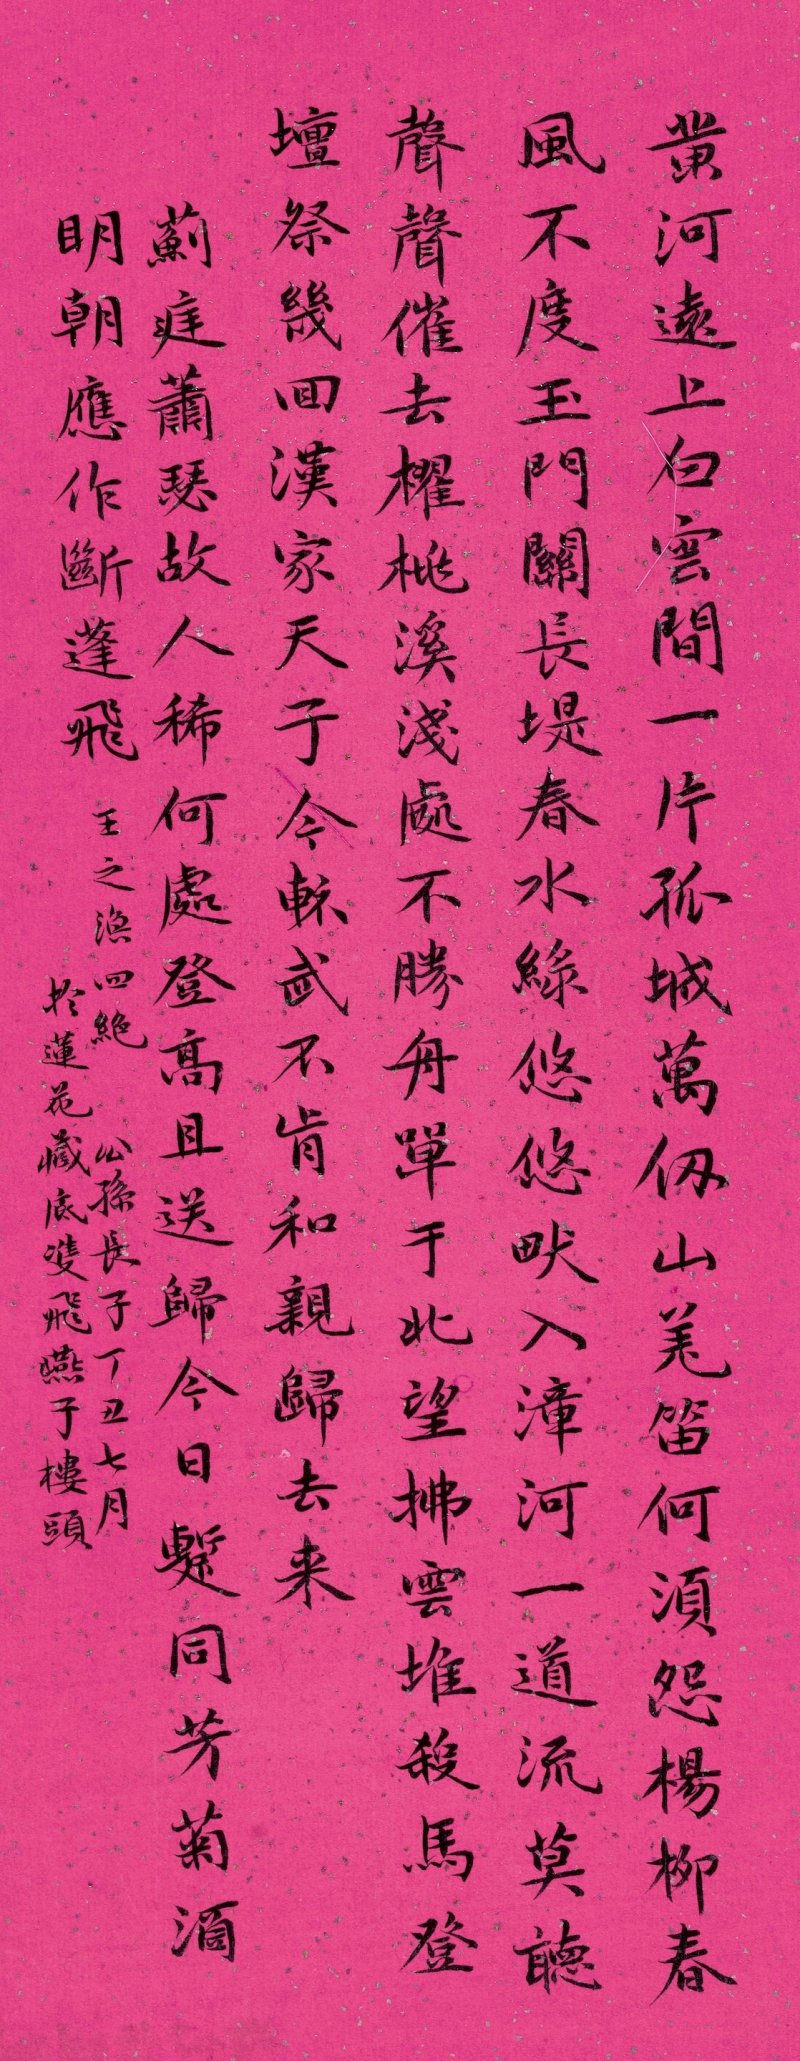 黄河遠上白雲間一片孤城萬仞山羌笛何須怨楊柳春
風不度玉門關長堤春水綠悠悠畎入漳河一道流莫聽
聲聲催去櫂桃溪淺處不勝舟單于北望拂雲堆殺馬登
壇祭幾回漢家天子今神武不肯和親歸去来
薊庭蕭瑟故人稀何處登高且送歸今日暫同芳菊酒
明朝應作斷蓬飛
王之渙四絶 公孫長子丁丑七月
於蓮花藏底雙飛燕子樓頭